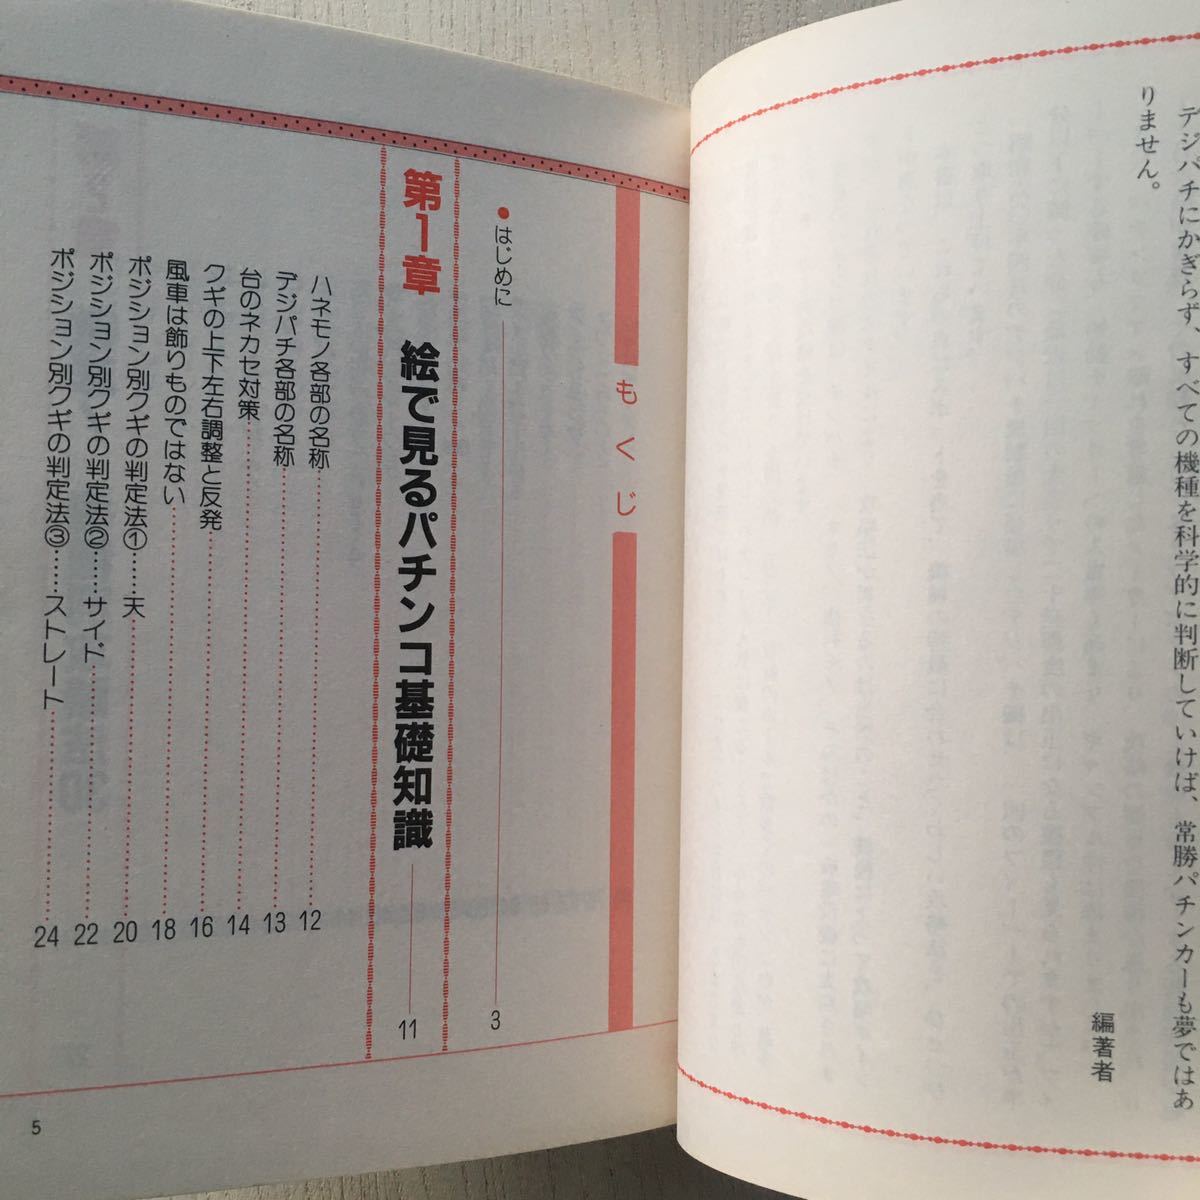 デジパチにかぎらず、すべての機種を科学的に判断していけば、常勝パチンカーも夢ではあ
りません。
編著者
もくじ
●はじめに 3
第1章 絵で見るパチンコ基礎知識 11
ハネモノ各部の名称 12
デジパチ各部の名称 13
台のネカセ対策 14
クギの上下左右調整と反発 16
風車は飾りものではない 18
ポジション別クギの判定法①……天 20
ポジション別クギの判定法②……サイド 22
ポジション別クギの判定法③……ストレート 24
5